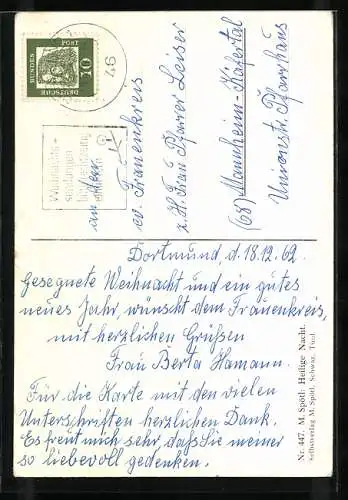 DEUTSCHE
BUNDES
POST
10
46
an den
ev. Frauenkreis
z. H. Frau Pfarrer Leiser
(68) Mannheim-Käfertal
Unionstr. Pfarrhaus
Dortmund, d. 18.12.62.
Gesegnete Weihnacht und ein gutes
neues Jahr, wünscht dem Frauenkreis,
mit herzlichen Grüßen
Frau Berta Hamann.
Für die Karte mit den vielen
Unterschriften herzlichen Dank.
Es freut mich sehr, daß Sie meiner
so liebevoll gedenken.
Nr. 447. M. Spötl: Heilige Nacht.
Selbstverlag M. Spötl, Schwaz, Tirol